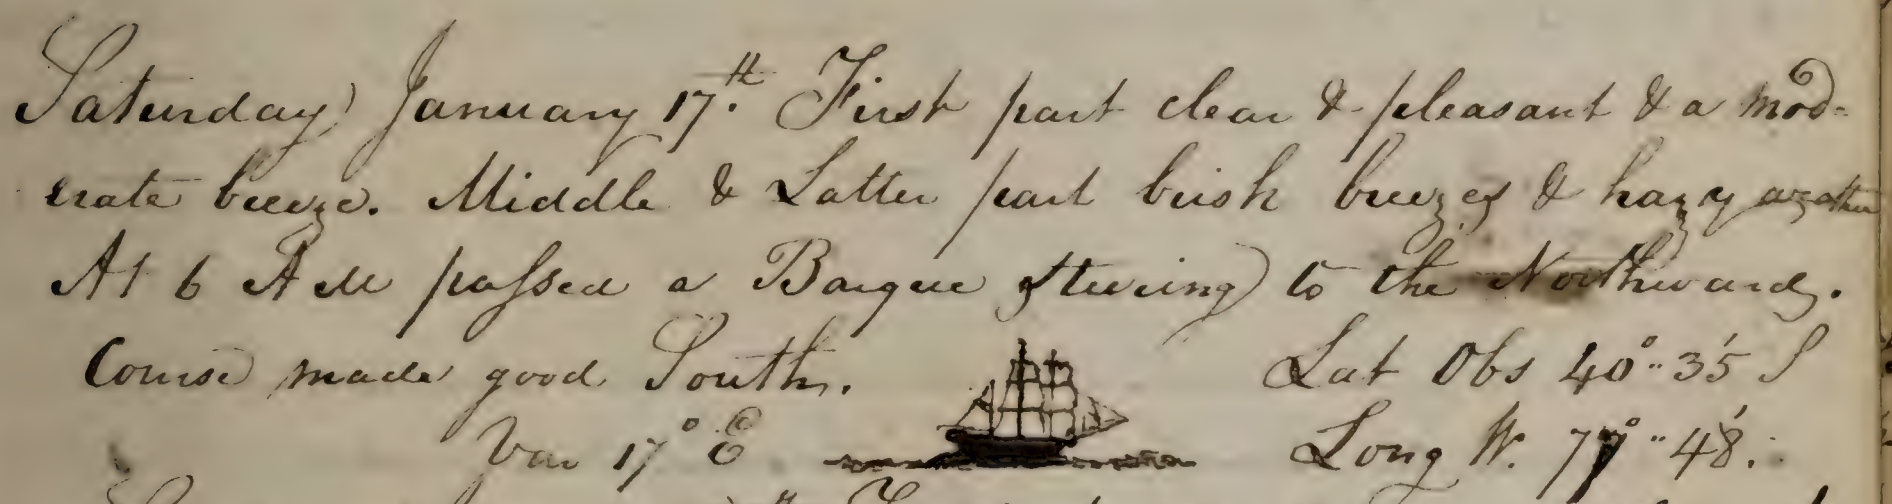 Saturday January 17th. First part clear & pleasant & a mod-
erate breeze. Middle & Latter part brisk breezes & hazy weather
At 6 AM passed a Barque steering to the Northward.
Course made good South. Lat Obs 40°..35' S
Var 17° E Long W. 77°..48'.